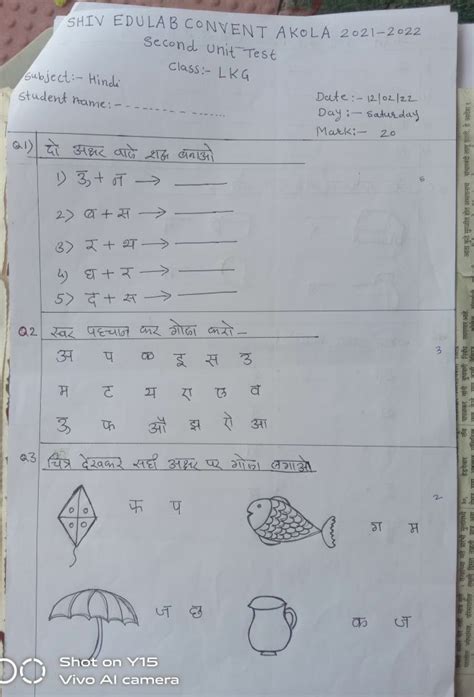 SHIV EDULAB CONVENT AKOLA 2021-2022
Second Unit Test
Class:- LKG
Subject:- Hindi
Student name:-
Date:- 12/02/22
Day:- Saturday
Mark:- 20
Q1) दो अक्षर वाले शब्द बनाओ
1) ऊ + न →
2) ब + स →
3) र + थ →
4) घ + र →
5) द + स →
Q2 स्वर पहचान कर गोला करो -
3
अ प क इ स उ
म ट य ए छ व
ऊ फ औ झ ऐ आ
Q3 चित्र देखकर सही अक्षर पर गोला लगाओ
2
फ प
ग म
ज छ
क ज
Shot on Y15
Vivo AI camera